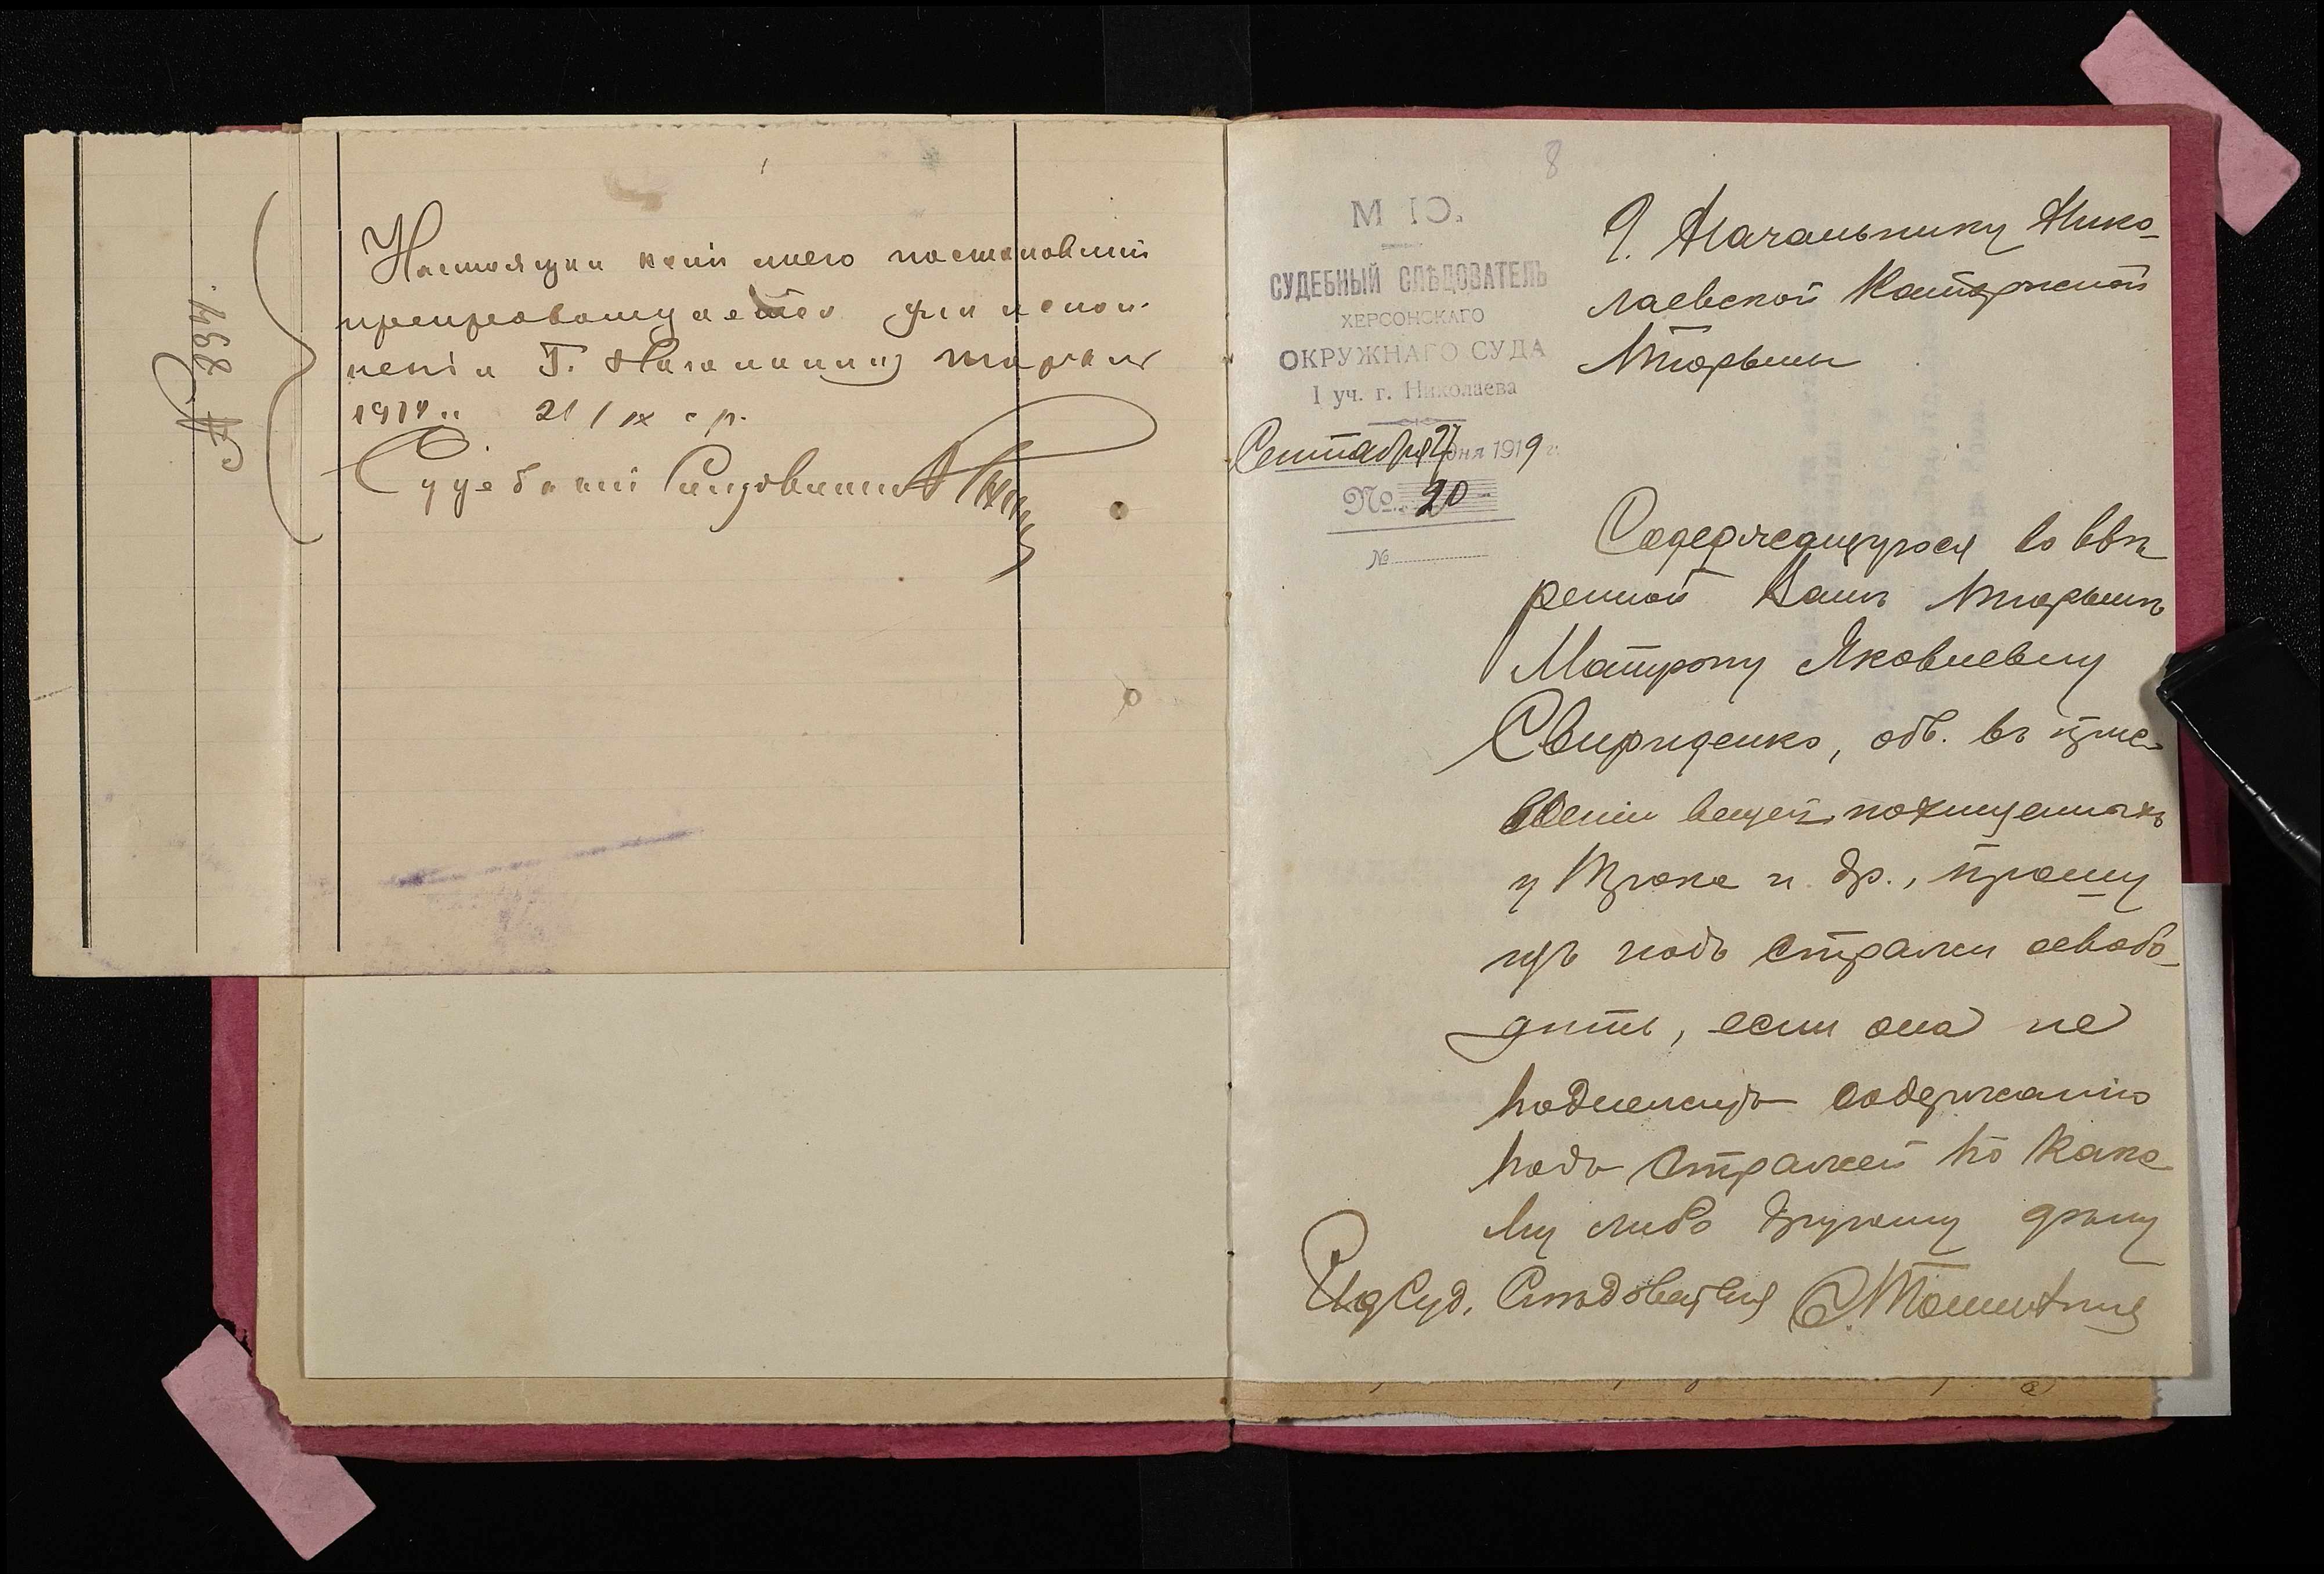 № 1394.
Настоящая копія моего постановленія
препровождается для испол-
ненія Г. Начальнику тюрьмы
1919 г. 21/IX с. р.
Судебный Слѣдователь
8
М. Ю.
СУДЕБНЫЙ СЛѢДОВАТЕЛЬ
ХЕРСОНСКАГО
ОКРУЖНАГО СУДА
I уч. г. Николаева
Сентября 27 дня 1919 г.
№ 20
№
Г. Начальнику Нико-
лаевской Каторжной
Тюрьмы
Содержащуюся во ввѣ
ренной Вамъ тюрьмѣ
Матрону Яковлевну
Свириденко, обв. въ
вещей похищенныхъ
у и др., прошу
изъ подъ стражи освобо-
дить, если она не
подлежитъ содержанію
подъ стражей по како
му либо другому дѣлу
Ид Суд. Слѣдователя